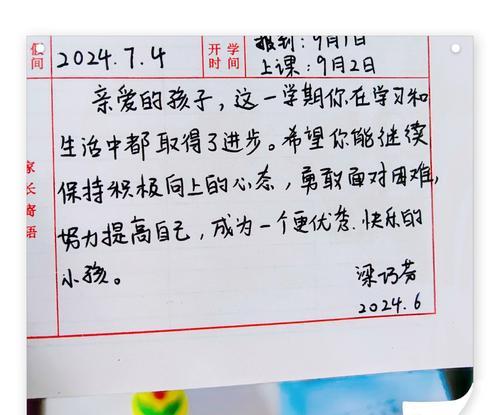 假间 2024.7.4 开学时间 报到：9月1日
上课：9月2日
家长寄语
亲爱的孩子，这一学期你在学习和
生活中都取得了进步。希望你能继续
保持积极向上的心态，勇敢面对困难，
努力提高自己，成为一个更优秀、快乐的
小孩。
梁巧芳
2024.6